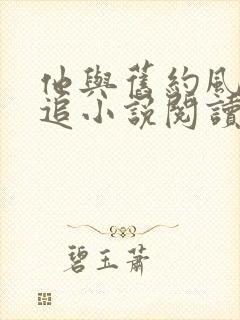 他與舊約風
追小說閱讀
碧玉蕭